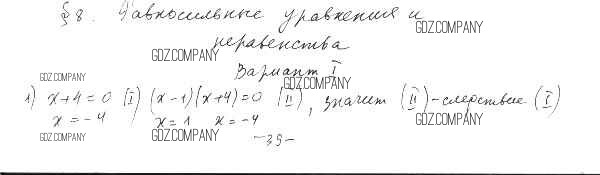 § 8. Равносильные уравнения и
GDZ.COMPANY
неравенства
GDZ.COMPANY
Вариант I
GDZ.COMPANY
GDZ.COMPANY
1) x+4=0 (I) (x-1)(x+4)=0 (II), значит (II)-следствие (I)
x=-4 x=1 x=-4
GDZ.COMPANY
GDZ.COMPANY
GDZ.COMPANY
-39-